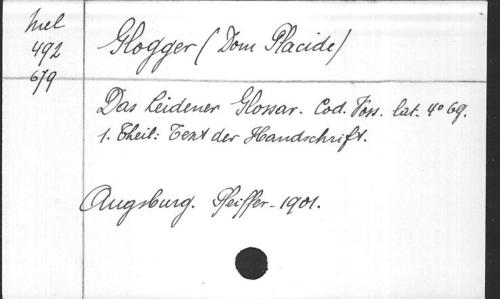 Mel
492
679
Glogger (Dom Placide)
Das Leidener Glossar. Cod. Voss. lat. 4° 69.
1. Theil: Text der Handschrift.
Augsburg. Pfeiffer - 1901.